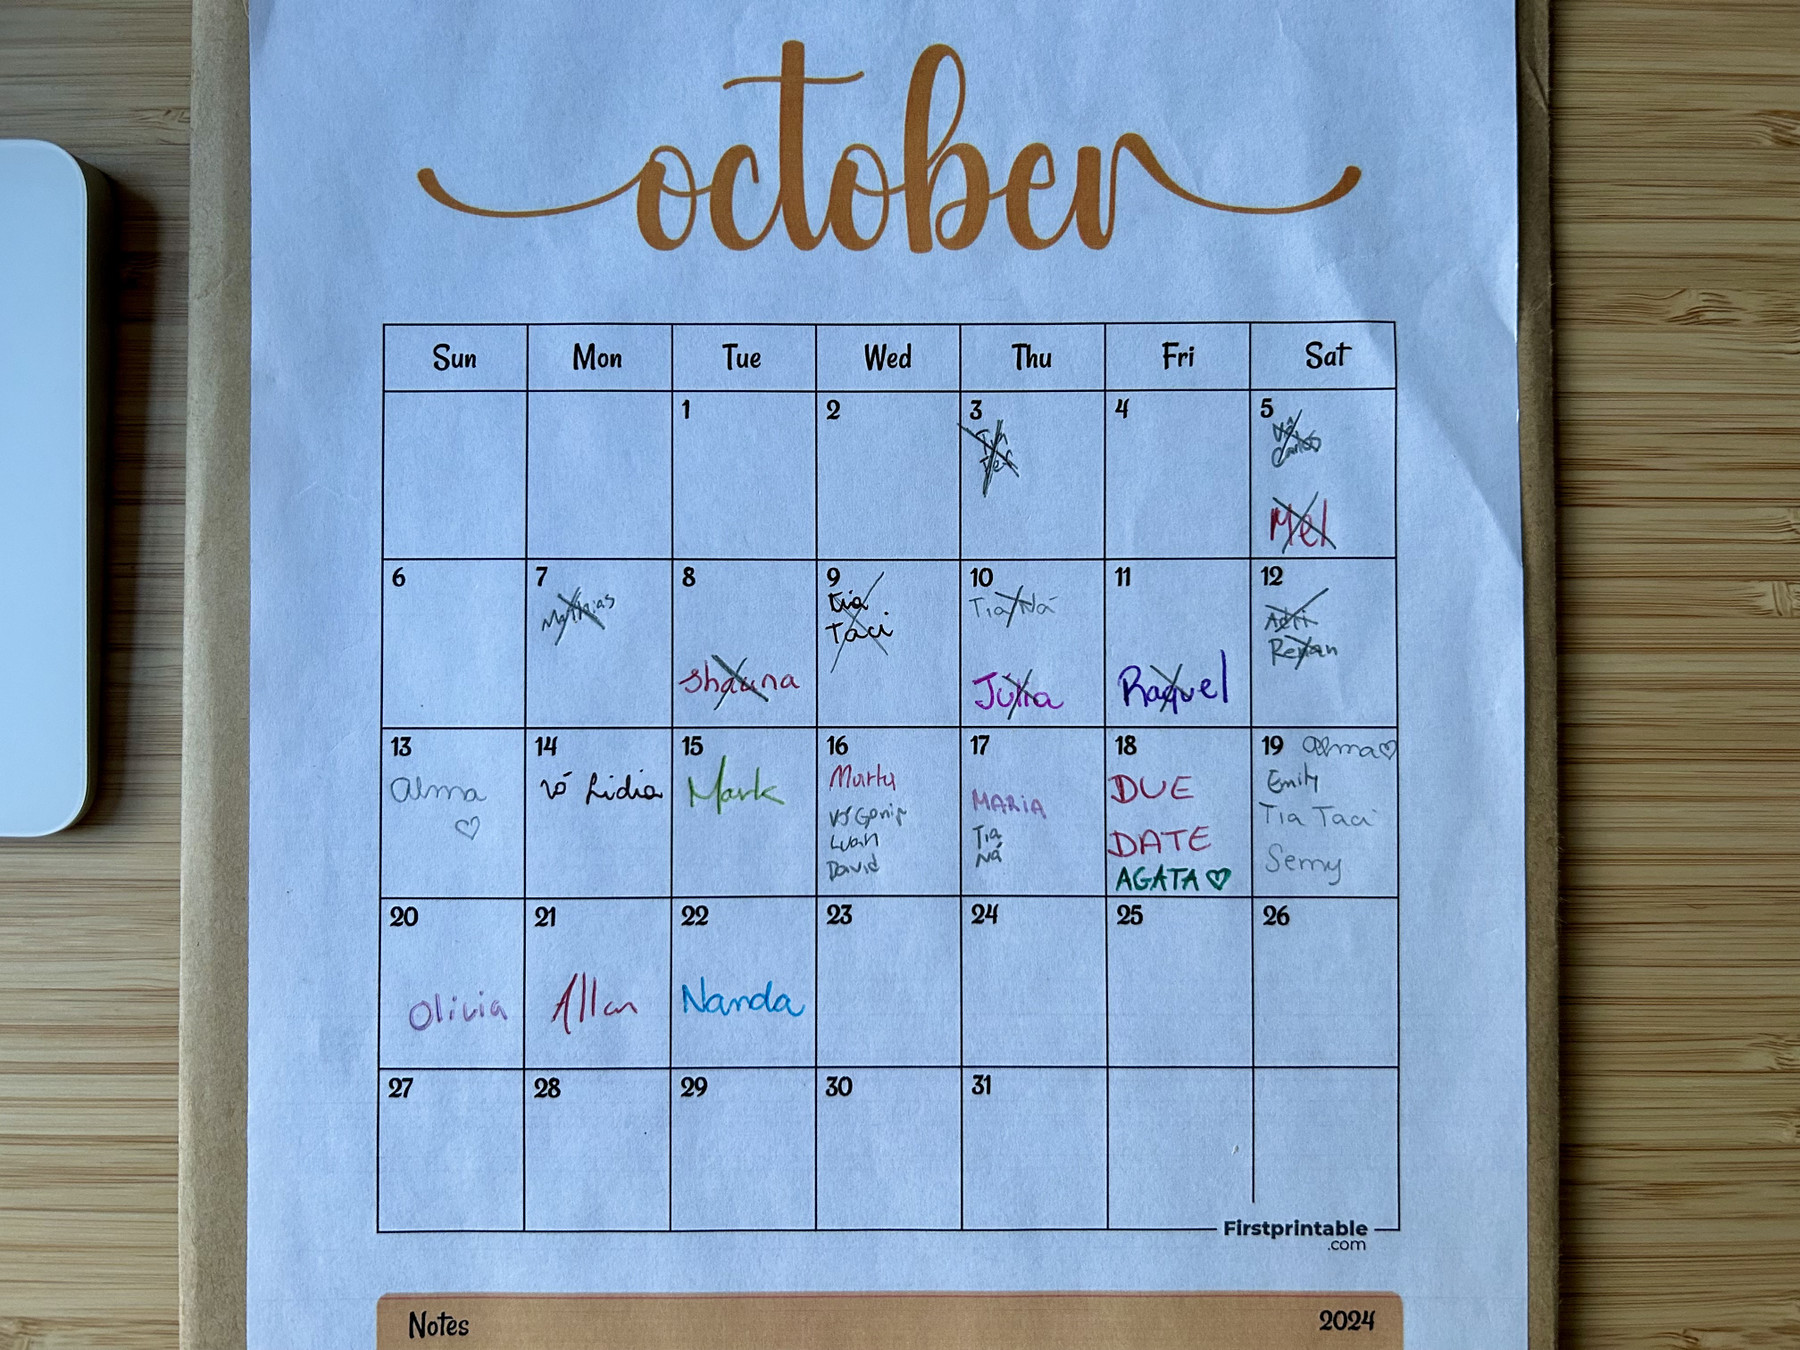 october
Sun Mon Tue Wed Thu Fri Sat
1 2 3 4 5
Vô
Carlos
Mel
6 7 8 9 10 11 12
Mathias
Tia
Taci
Tia Ná
Adri
Renan
Shauna
Julia
Raquel
13 14 15 16 17 18 19
Alma
Vó Lidia
Mark
Marta
Luan
David
MARIA
Tia
Ná
DUE
DATE
AGATA
Alma
Emily
Tia Taci
Semy
20 21 22 23 24 25 26
Olivia
Allan
Nanda
27 28 29 30 31
Firstprintable
.com
Notes 2024